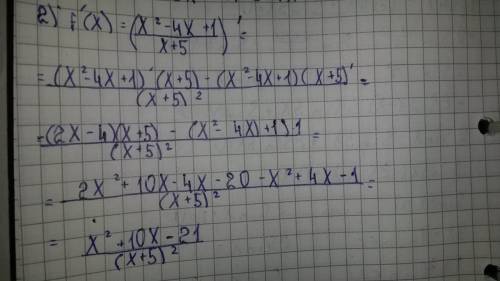 2) f'(x) = (x² - 4x + 1 / x + 5)' =
= (x² - 4x + 1)' (x + 5) - (x² - 4x + 1) (x + 5)' / (x + 5)² =
= (2x - 4)(x + 5) - (x² - 4x) + 1) 1 / (x + 5)² =
= 2x² + 10x - 4x - 20 - x² + 4x - 1 / (x + 5)² =
= x² + 10x - 21 / (x + 5)²